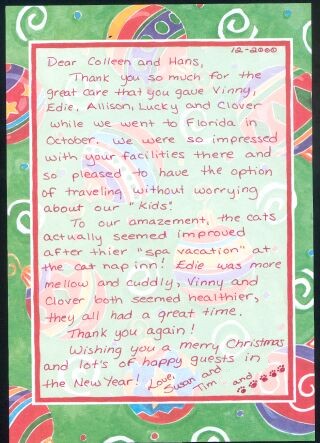 12-2000
Dear Colleen and Hans,
Thank you so much for the
great care that you gave Vinny,
Edie, Allison, Lucky and Clover
while we went to Florida in
October. We were so impressed
with your facilities there and
so pleased to have the option
of traveling without worrying
about our "kids".
To our amazement, the cats
actually seemed improved
after thier "spa vacation" at
the cat nap inn! Edie was more
mellow and cuddly, Vinny and
Clover both seemed healthier,
they all had a great time.
Thank you again!
Wishing you a merry Christmas
and lot's of happy guests in
the New Year! Love,
Susan and
Tim and